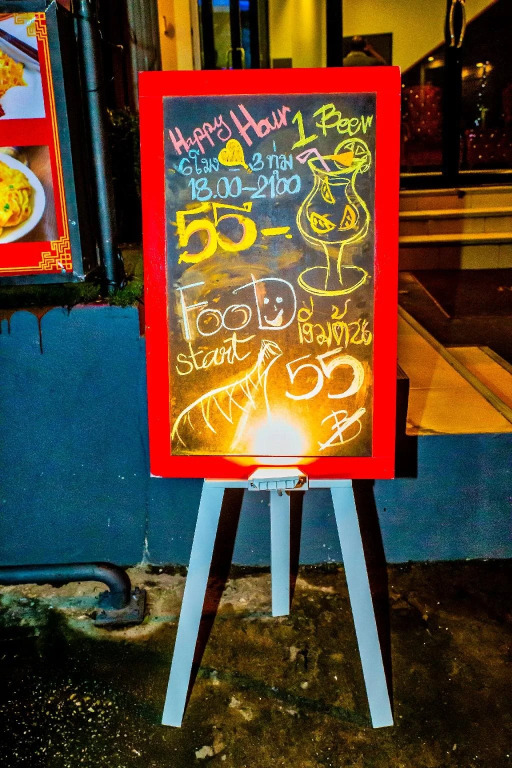 Happy Hour 1 Beer
6โมง - 3 ทุ่ม
18.00-21.00
55.-
Food เริ่มต้น
start 55 ฿